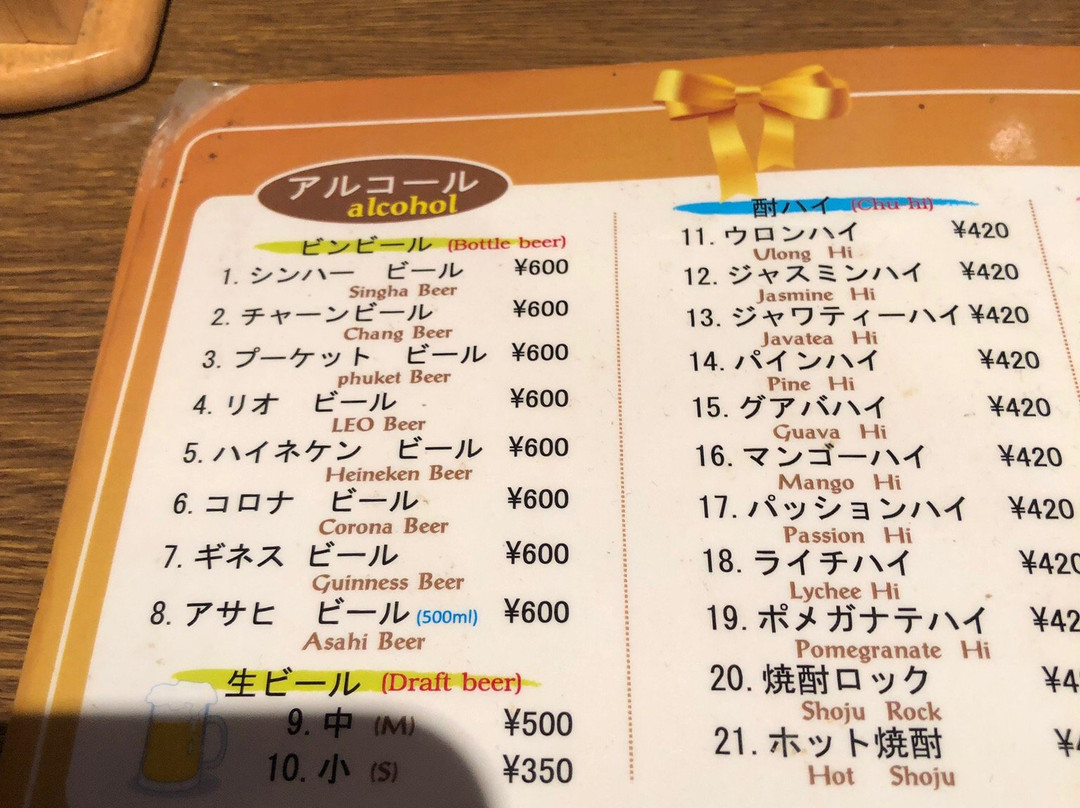 アルコール
alcohol
ビンビール (Bottle beer)
1. シンハー ビール ¥600
Singha Beer
2. チャーンビール ¥600
Chang Beer
3. プーケット ビール ¥600
phuket Beer
4. リオ ビール ¥600
LEO Beer
5. ハイネケン ビール ¥600
Heineken Beer
6. コロナ ビール ¥600
Corona Beer
7. ギネス ビール ¥600
Guinness Beer
8. アサヒ ビール (500ml) ¥600
Asahi Beer
生ビール (Draft beer)
9. 中 (M) ¥500
10. 小 (S) ¥350
酎ハイ (Chu hi)
11. ウロンハイ ¥420
Ulong Hi
12. ジャスミンハイ ¥420
Jasmine Hi
13. ジャワティーハイ ¥420
Javatea Hi
14. パインハイ ¥420
Pine Hi
15. グアバハイ ¥420
Guava Hi
16. マンゴーハイ ¥420
Mango Hi
17. パッションハイ ¥420
Passion Hi
18. ライチハイ ¥420
Lychee Hi
19. ポメガナテハイ ¥42
Pomegranate Hi
20. 焼酎ロック ¥4
Shoju Rock
21. ホット焼酎 ¥4
Hot Shoju